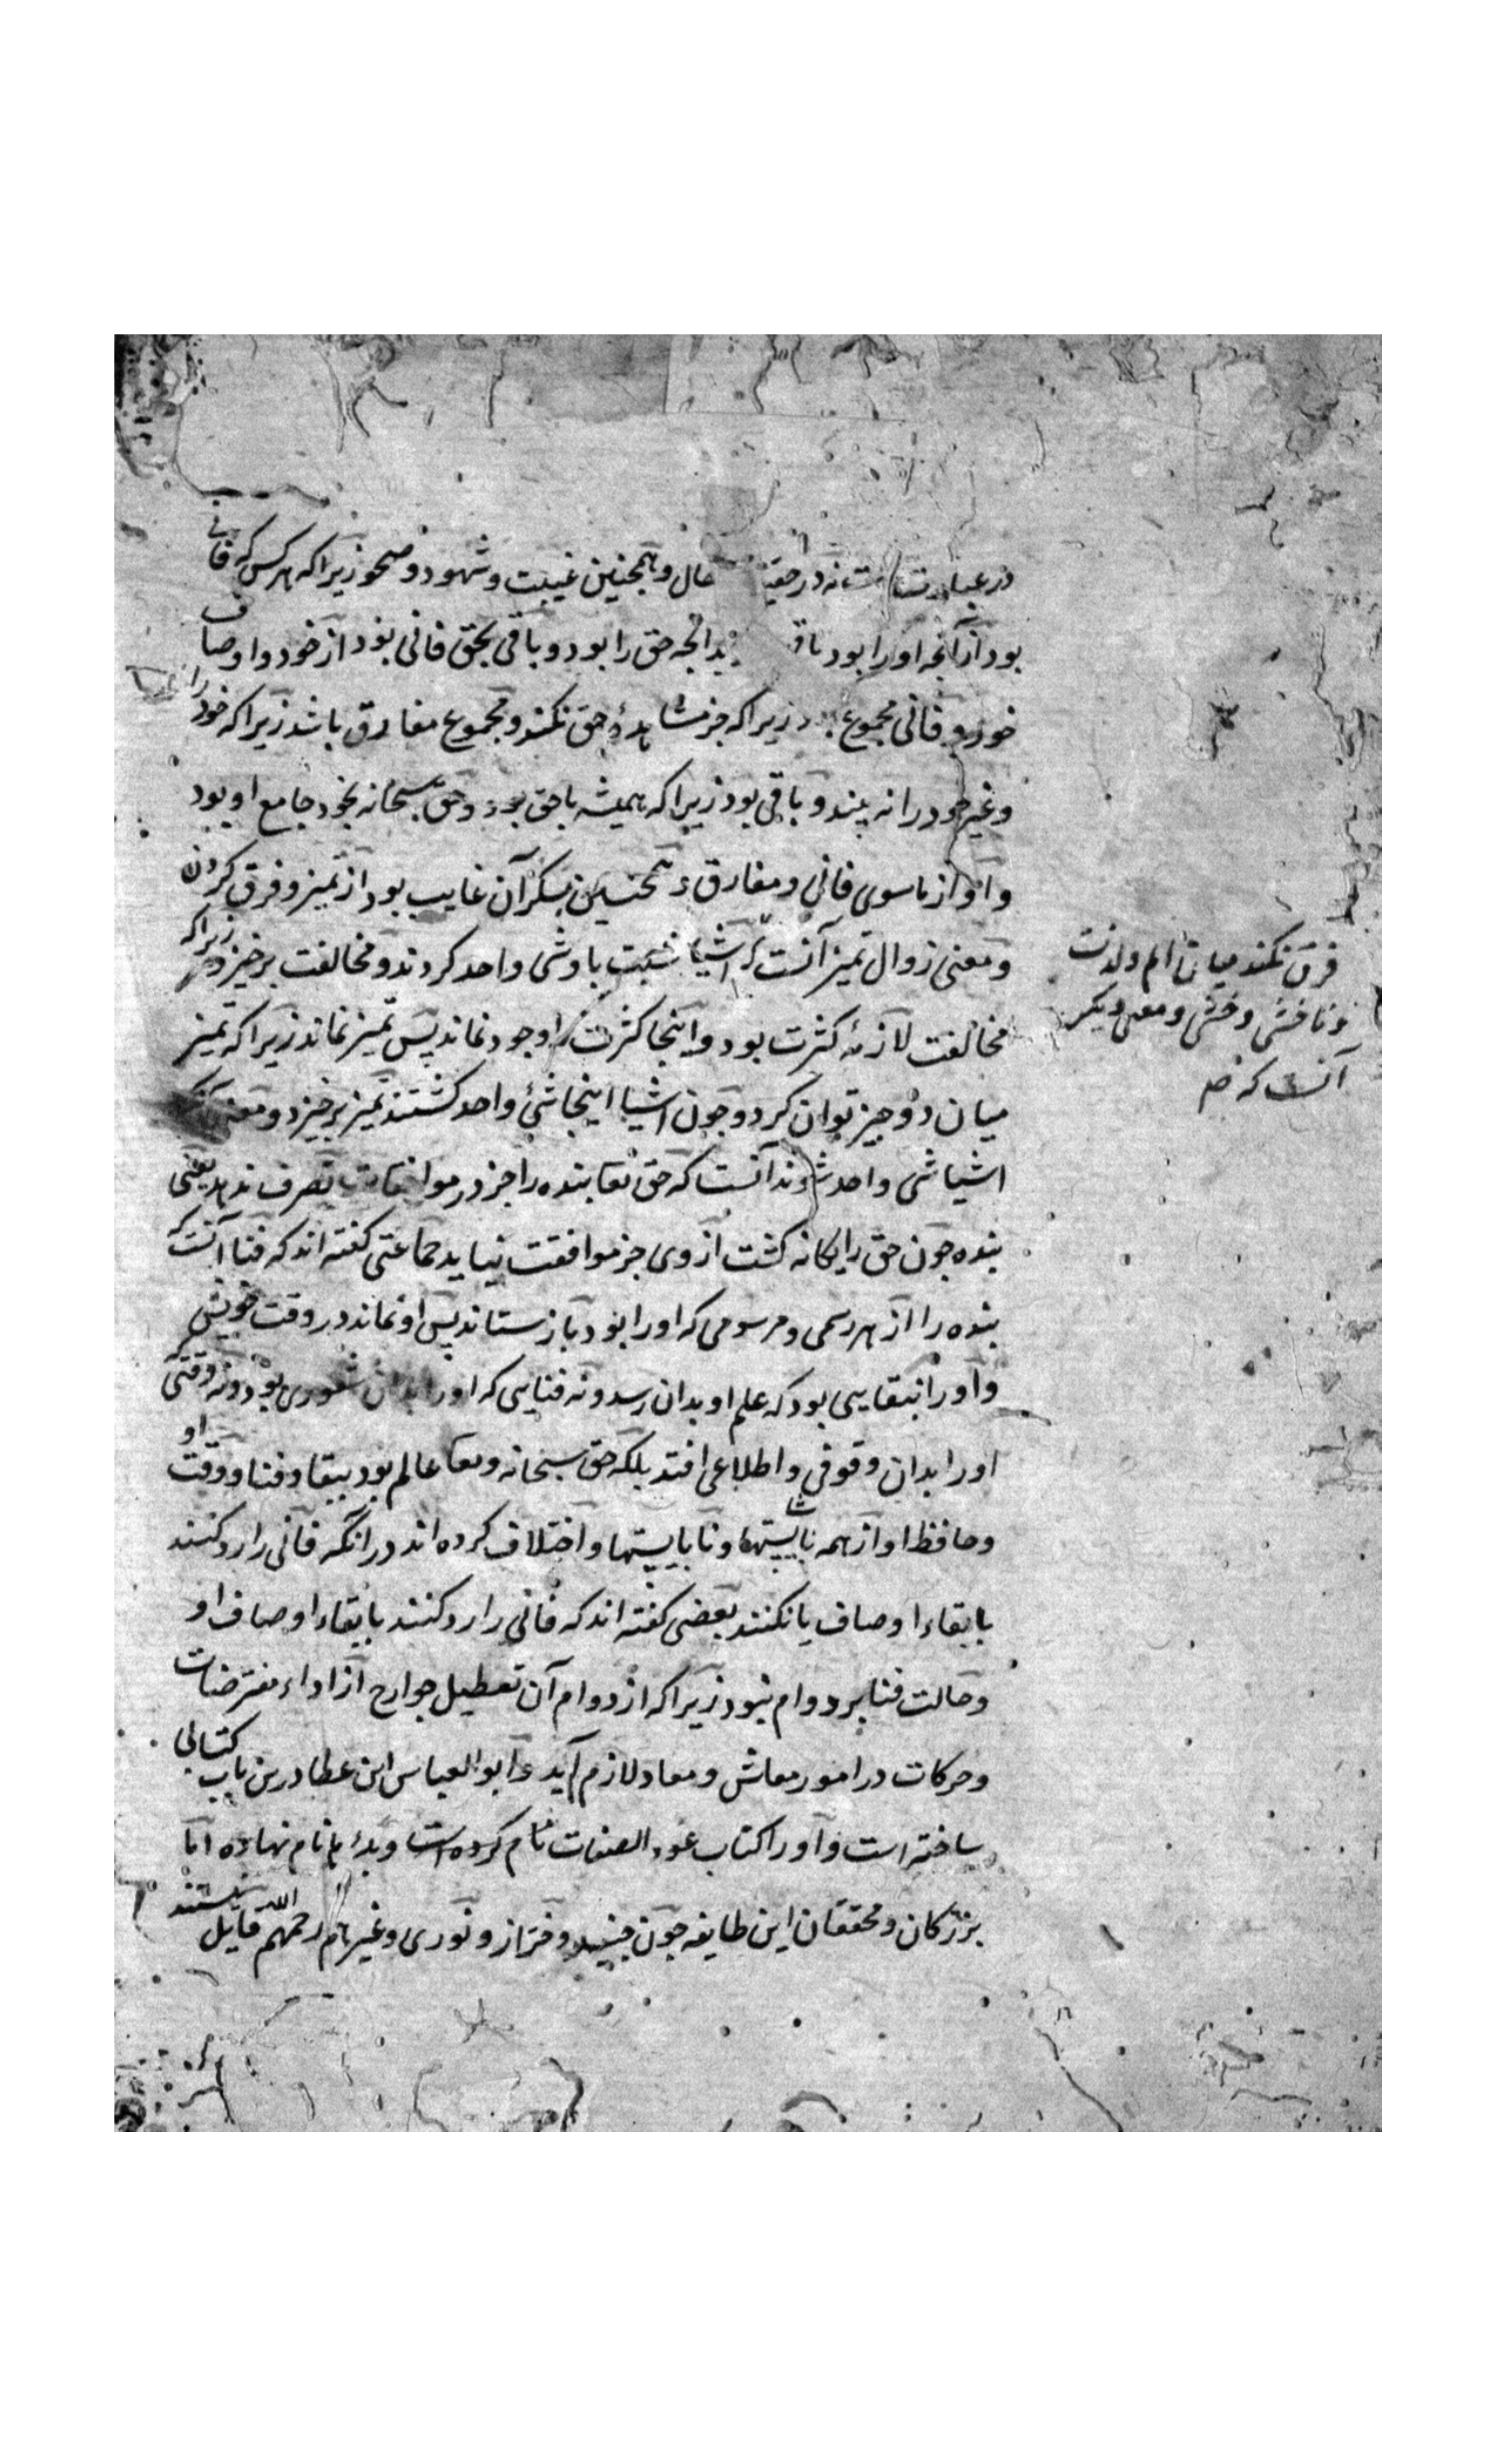 در عبارت است نه در حقیقت حال و همچنین غیبت و شهود و صحو زیرا که هر کس که فانی
بود از آنچه او را بود باقی بدانچه حق را بود و باقی بحق فانی بود از خود و اوصاف
خود و فانی مجموع بود زیرا که جز مشاهدهٔ حق نکند و مجموع مفارق باشد زیرا که خود را
و غیر خود را نه بیند و باقی بود زیرا که همیشه با حق بود و حق سبحانه بخود جامع او بود
و او از ماسوی فانی و مفارق و همچنین بسکر آن غایب بود از تمیز و فرق کردن
و معنی زوال تمیز آنست که اشیا نسبت باو شی واحد کردند و مخالفت برخیزد زیرا که
مخالفت لازمهٔ کثرت بود و اینجا کثرت را وجود نماند پس تمیز نماند زیرا که تمیز
میان دو چیز توان کرد و چون اشیا اینجا شیٔ واحد کشتند تمیز برخیزد و معنی آنکه
اشیا شی واحد شوند آنست که حق تعا بنده را جز در موافقات تصرف ندهد یعنی
بنده چون حق را یکانه کشت از وی جز موافقت نیاید جماعتی کفته اند که فنا آنست که
بنده را از هر رسمی و مرسومی که او را بود باز ستاند پس او نماند در وقت خویش
و او را نه بقایی بود که علم او بدان رسد و نه فنایی که او را بدان شعوری بود و نه وقتی که
او را بدان وقوفی و اطلاعی افتد بلکه حق سبحانه و تعا عالم بود ببقا و فنا و وقت او
و حافظ او از همه ناشایستها و نابایستها و اختلاف کرده اند در آنکه فانی را رد کنند
بابقاء اوصاف یا نکنند بعضی کفته اند که فانی را رد کنند بابقاء اوصاف او
و حالت فنا بر دوام نبود زیرا که از دوام آن تعطیل جوارح از اداء مفترضات
و حرکات در امور معاش و معاد لازم آید و ابو العباس ابن عطا درین باب کتابی
ساخته است و او را کتاب عود الصفات نام کرده است و بدء هم نام نهاده اما
بزرکان و محققان این طایفه چون جنید و خراز و نوری و غیرهم رحمهم الله قایل نیستند
فرق نکند میان الم و لذت
و ناخشی و خشی و معنی دیکر
آنست که